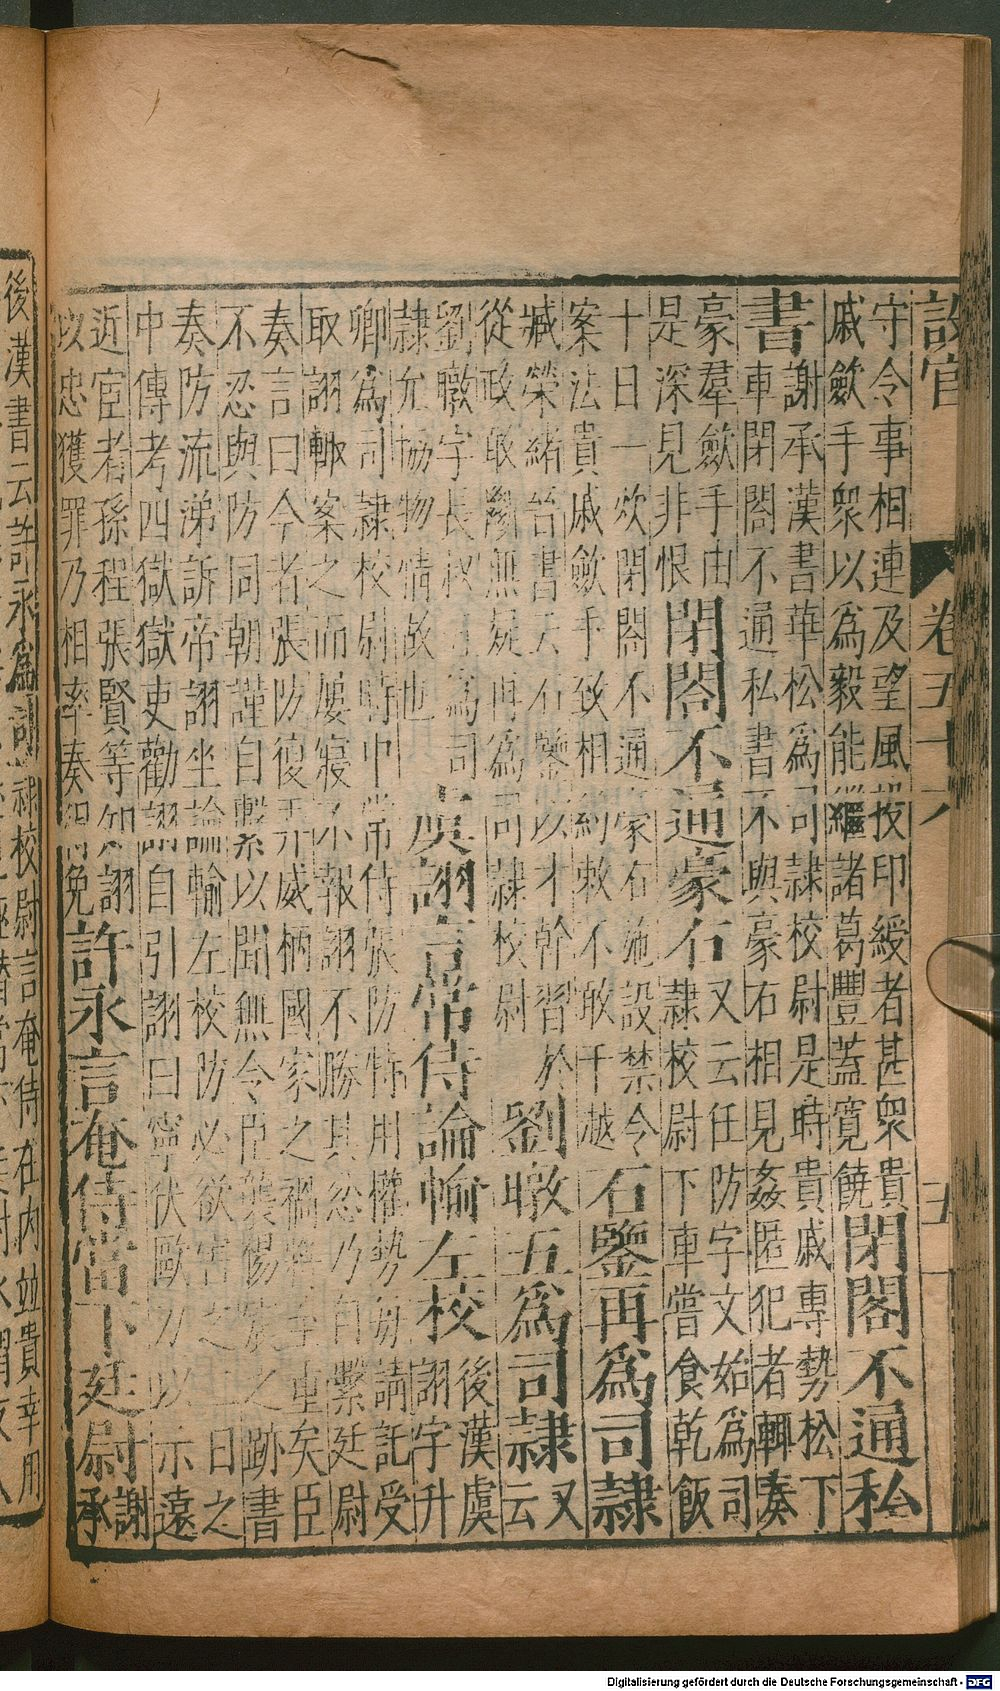 設官 卷五十八 五十
守令事相連及望風投印綬者甚衆貴
戚歛手衆以爲毅能繼諸葛豐蓋寬饒
閉閤不通私
書
謝承漢書華松爲司隷校尉是時貴戚專勢松下
車閉閤不通私書不與豪右相見姦匿犯者輙奏
豪羣歛手由
是深見非恨
閉閤不通豪右
又云任防字文始爲司
隷校尉下車嘗食乾飯
十日一炊閉閤不通豪右施設禁令
案法貴戚歛手致相約敕不敢干越
石鑒再爲司隷
臧榮緒晉書云石鑒以才幹習於
從政敢斷無疑再爲司隷校尉
劉暾五爲司隷
又
云
劉暾字長叔五爲司
隷允協物情故也
虞詡言常侍論輸左校
後漢虞
詡字升
卿爲司隷校尉時中常侍張防特用權勢每請託受
取詡輙案之而屢寢不報詡不勝其忿乃自繫廷尉
奏言曰今者張防復弄威柄國家之禍將重至矣臣
不忍與防同朝謹自繫以聞無令臣襲楊震之跡書
奏防流涕訴帝詡坐論輸左校防必欲害之二日之
中傳考四獄獄吏勸詡自引詡曰寧伏歐刀以示遠
近宦者孫程張賢等知詡
以忠獲罪乃相率奏得免
許永言奄侍當下廷尉
謝
承
後漢書云許永爲司隷校尉言奄侍在内並貴幸用
Digitalisierung gefördert durch die Deutsche Forschungsgemeinschaft - DFG